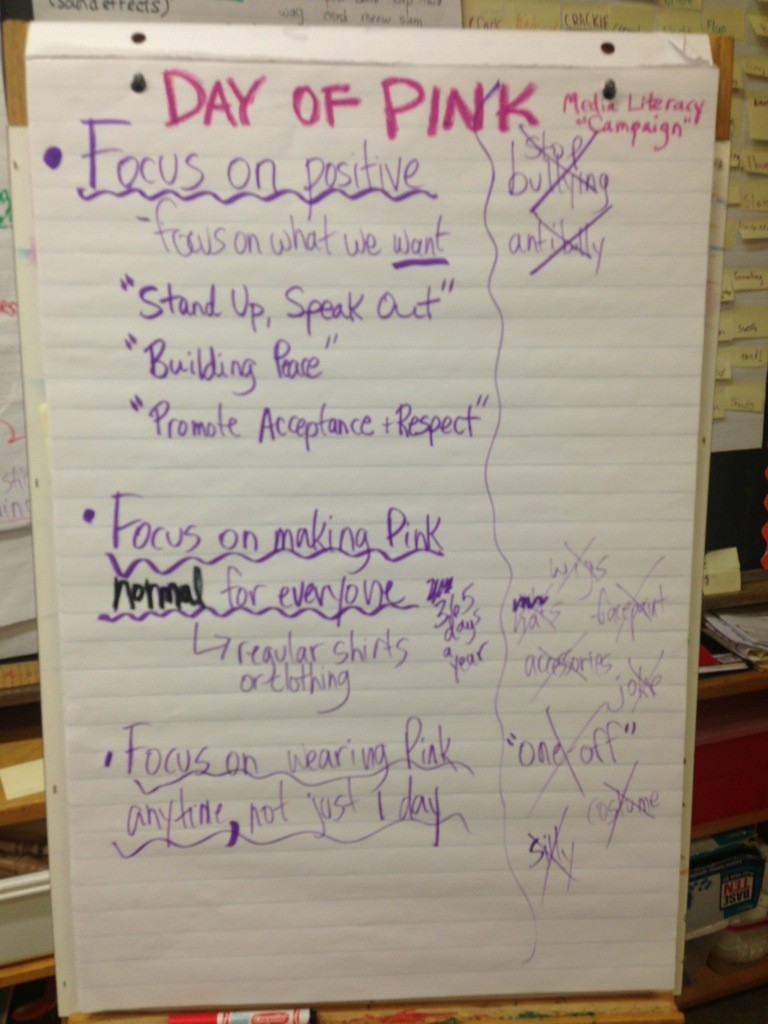 (sound effects)
wag nord meow sum
CRACKIE
DAY OF PINK
Media Literacy
"Campaign"
• Focus on positive
- focus on what we want
"Stand Up, Speak Out"
"Building Peace"
"Promote Acceptance + Respect"
stop
bullying
antibully
• Focus on making Pink
normal for everyone
365
days
a
year
↳ regular shirts
or clothing
wigs
hats facepaint
accessories
joke
• Focus on wearing Pink
anytime, not just 1 day
"one-off"
costume
silly
BASE
TEN